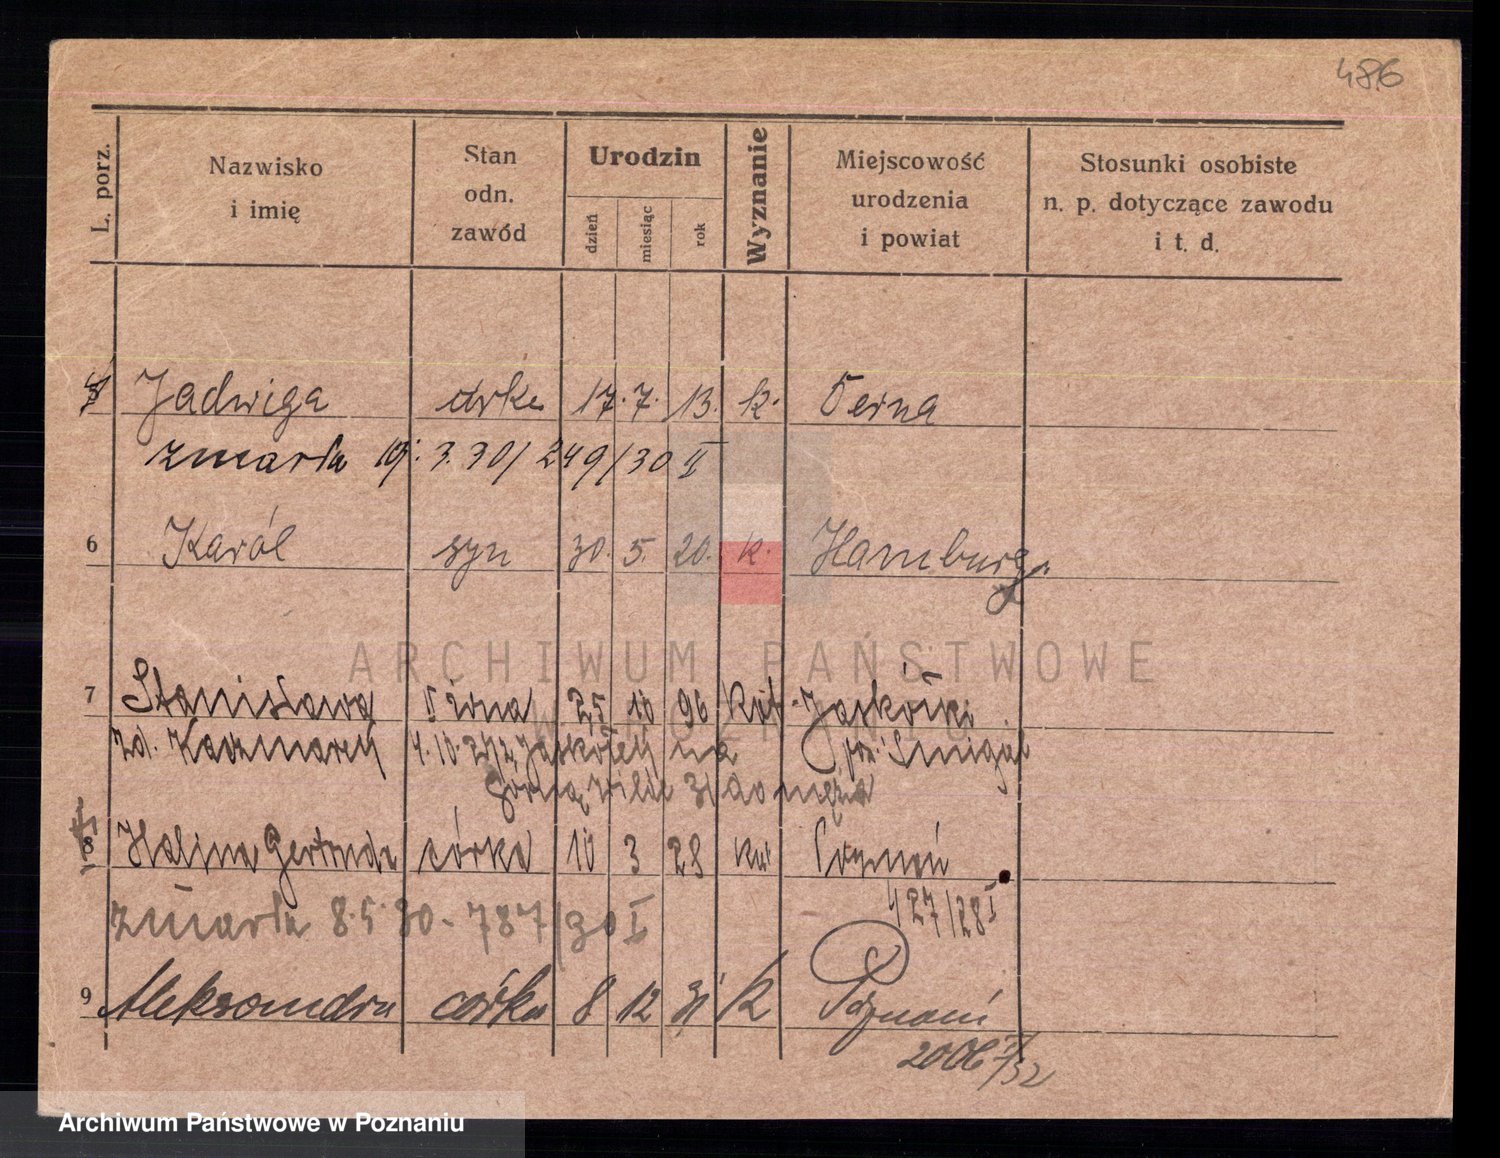 486
L. porz.
Nazwisko
i imię
Stan
odn.
zawód
Urodzin
dzień
miesiąc
rok
Wyznanie
Miejscowość
urodzenia
i powiat
Stosunki osobiste
n. p. dotyczące zawodu
i t. d.
5 Jadwiga 17. 7. 13. k.
zmarła 19. 3. 30/ 249/30 II
6 Karól syn 30. 5. 20. k. Hamburg
7 Stanisława żona 25 10 96 Kat
zd. Kaczmarek 4.10. na
Górną Wildę 31 do męża
8 Halina Gertruda córka 10 3 28 kat Poznań
427/28 I
zmarła 8.5.30 - 787/30 I
9 Aleksandra córka 8 12 31 k Poznań
2006 /32
ARCHIWUM PAŃSTWOWE
W POZNANIU
Archiwum Państwowe w Poznaniu